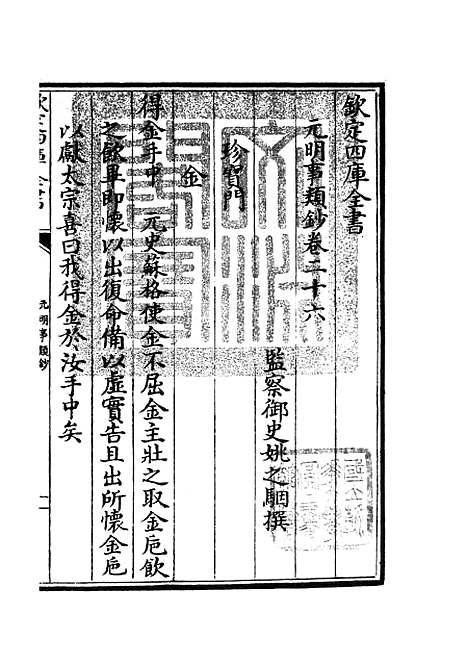 欽定四庫全書
元明事類鈔卷二十六
監察御史姚之駰撰
珍寶門
金
得金手中　元史蘇格使金不屈金主壯之取金巵飲
之飲畢即懷以出復命備以虛實告且出所懷金巵
以獻太宗喜曰我得金於汝手中矣
欽定四庫全書
元明事類鈔